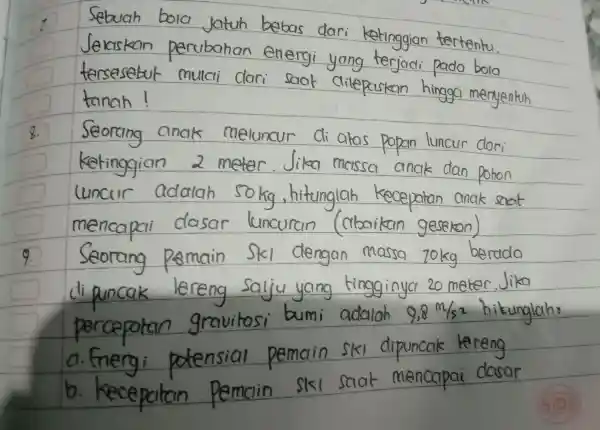 7. Sebuah bola jatuh bebas dari ketinggian tertentu.
Jelaskan perubahan energi yang terjadi pada bola
tersesebut mulai dari saat dilepaskan hingga menyentuh
tanah !
8. Seorang anak meluncur di atas papan luncur dari
ketinggian 2 meter. Jika massa anak dan papan
luncur adalah 50 kg, hitunglah kecepatan anak saat
mencapai dasar luncuran (abaikan gesekan)
9 Seorang pemain Ski dengan massa 70 kg berada
di puncak lereng salju yang tingginya 20 meter, Jika
percepatan gravitasi bumi adalah 9,8 m/s² hitunglah:
a. Energi potensial pemain ski dipuncak lereng
b. kecepatan Pemain ski saat mencapai dasar